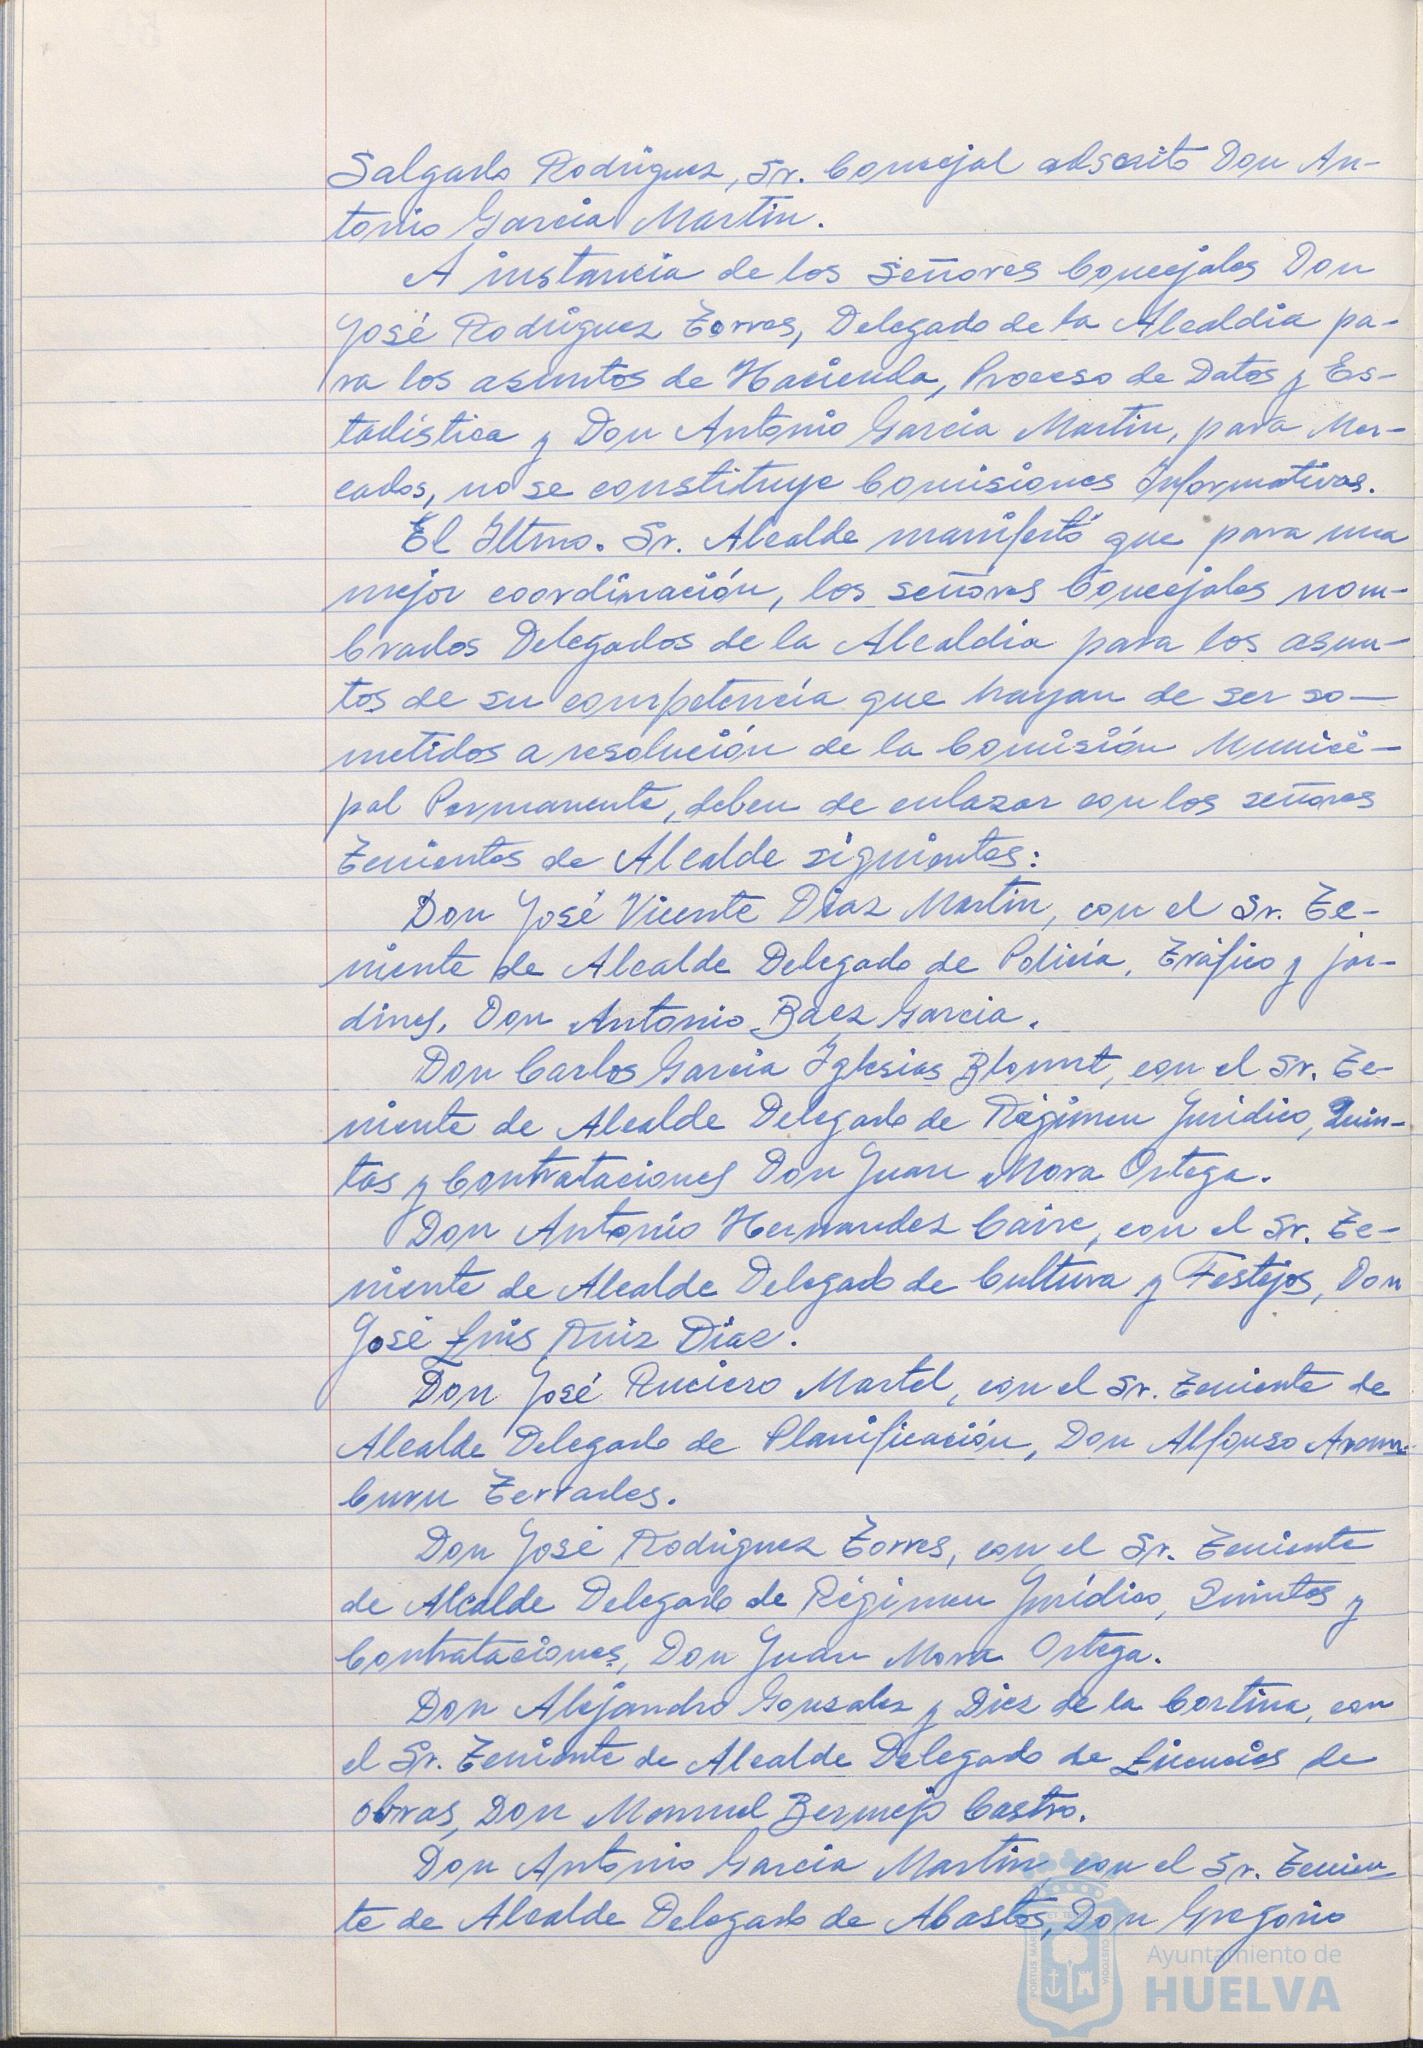 Salgado Rodriguez, Sr. Concejal adscrito Don An-
tonio Garcia Martin.
A instancia de los señores Concejales Don
José Rodriguez Torres, Delegado de la Alcaldia pa-
ra los asuntos de Hacienda, Proceso de Datos y Es-
tadística y Don Antonio Garcia Martin, para Mer-
cados, no se constituye Comisiones Informativas.
El Iltmo. Sr. Alcalde manifestó que para una
mejor coordinación, los señores Concejales nom-
brados Delegados de la Alcaldia para los asun-
tos de su competencia que hayan de ser so-
metidos a resolución de la Comisión Munici-
pal Permanente, deben de enlazar con los señores
Tenientes de Alcalde siguientes:
Don José Vicente Diaz Martin, con el Sr. Te-
niente de Alcalde Delegado de Policía, Tráfico y jar-
dines, Don Antonio Baez Garcia.
Don Carlos Garcia Iglesias Blount, con el Sr. Te-
niente de Alcalde Delegado de Régimen Juridico, Quin-
tas y Contrataciones Don Juan Mora Ortega.
Don Antonio Hernandez Caire, con el Sr. Te-
niente de Alcalde Delegado de Cultura y Festejos, Don
José Luis Ruiz Diaz.
Don José Ruciero Martel, con el Sr. Teniente de
Alcalde Delegado de Planificación, Don Alfonso Aram-
buru Terrades.
Don José Rodriguez Torres, con el Sr. Teniente
de Alcalde Delegado de Régimen Jurídico, Quintas y
Contrataciones, Don Juan Mora Ortega.
Don Alejandro Gonzalez y Diez de la Cortina, con
el Sr. Teniente de Alcalde Delegado de Licencias de
obras, Don Manuel Bermejo Castro.
Don Antonio Garcia Martin con el Sr. Tenien-
te de Alcalde Delegado de Abastos, Don Gregorio
Ayuntamiento de
HUELVA